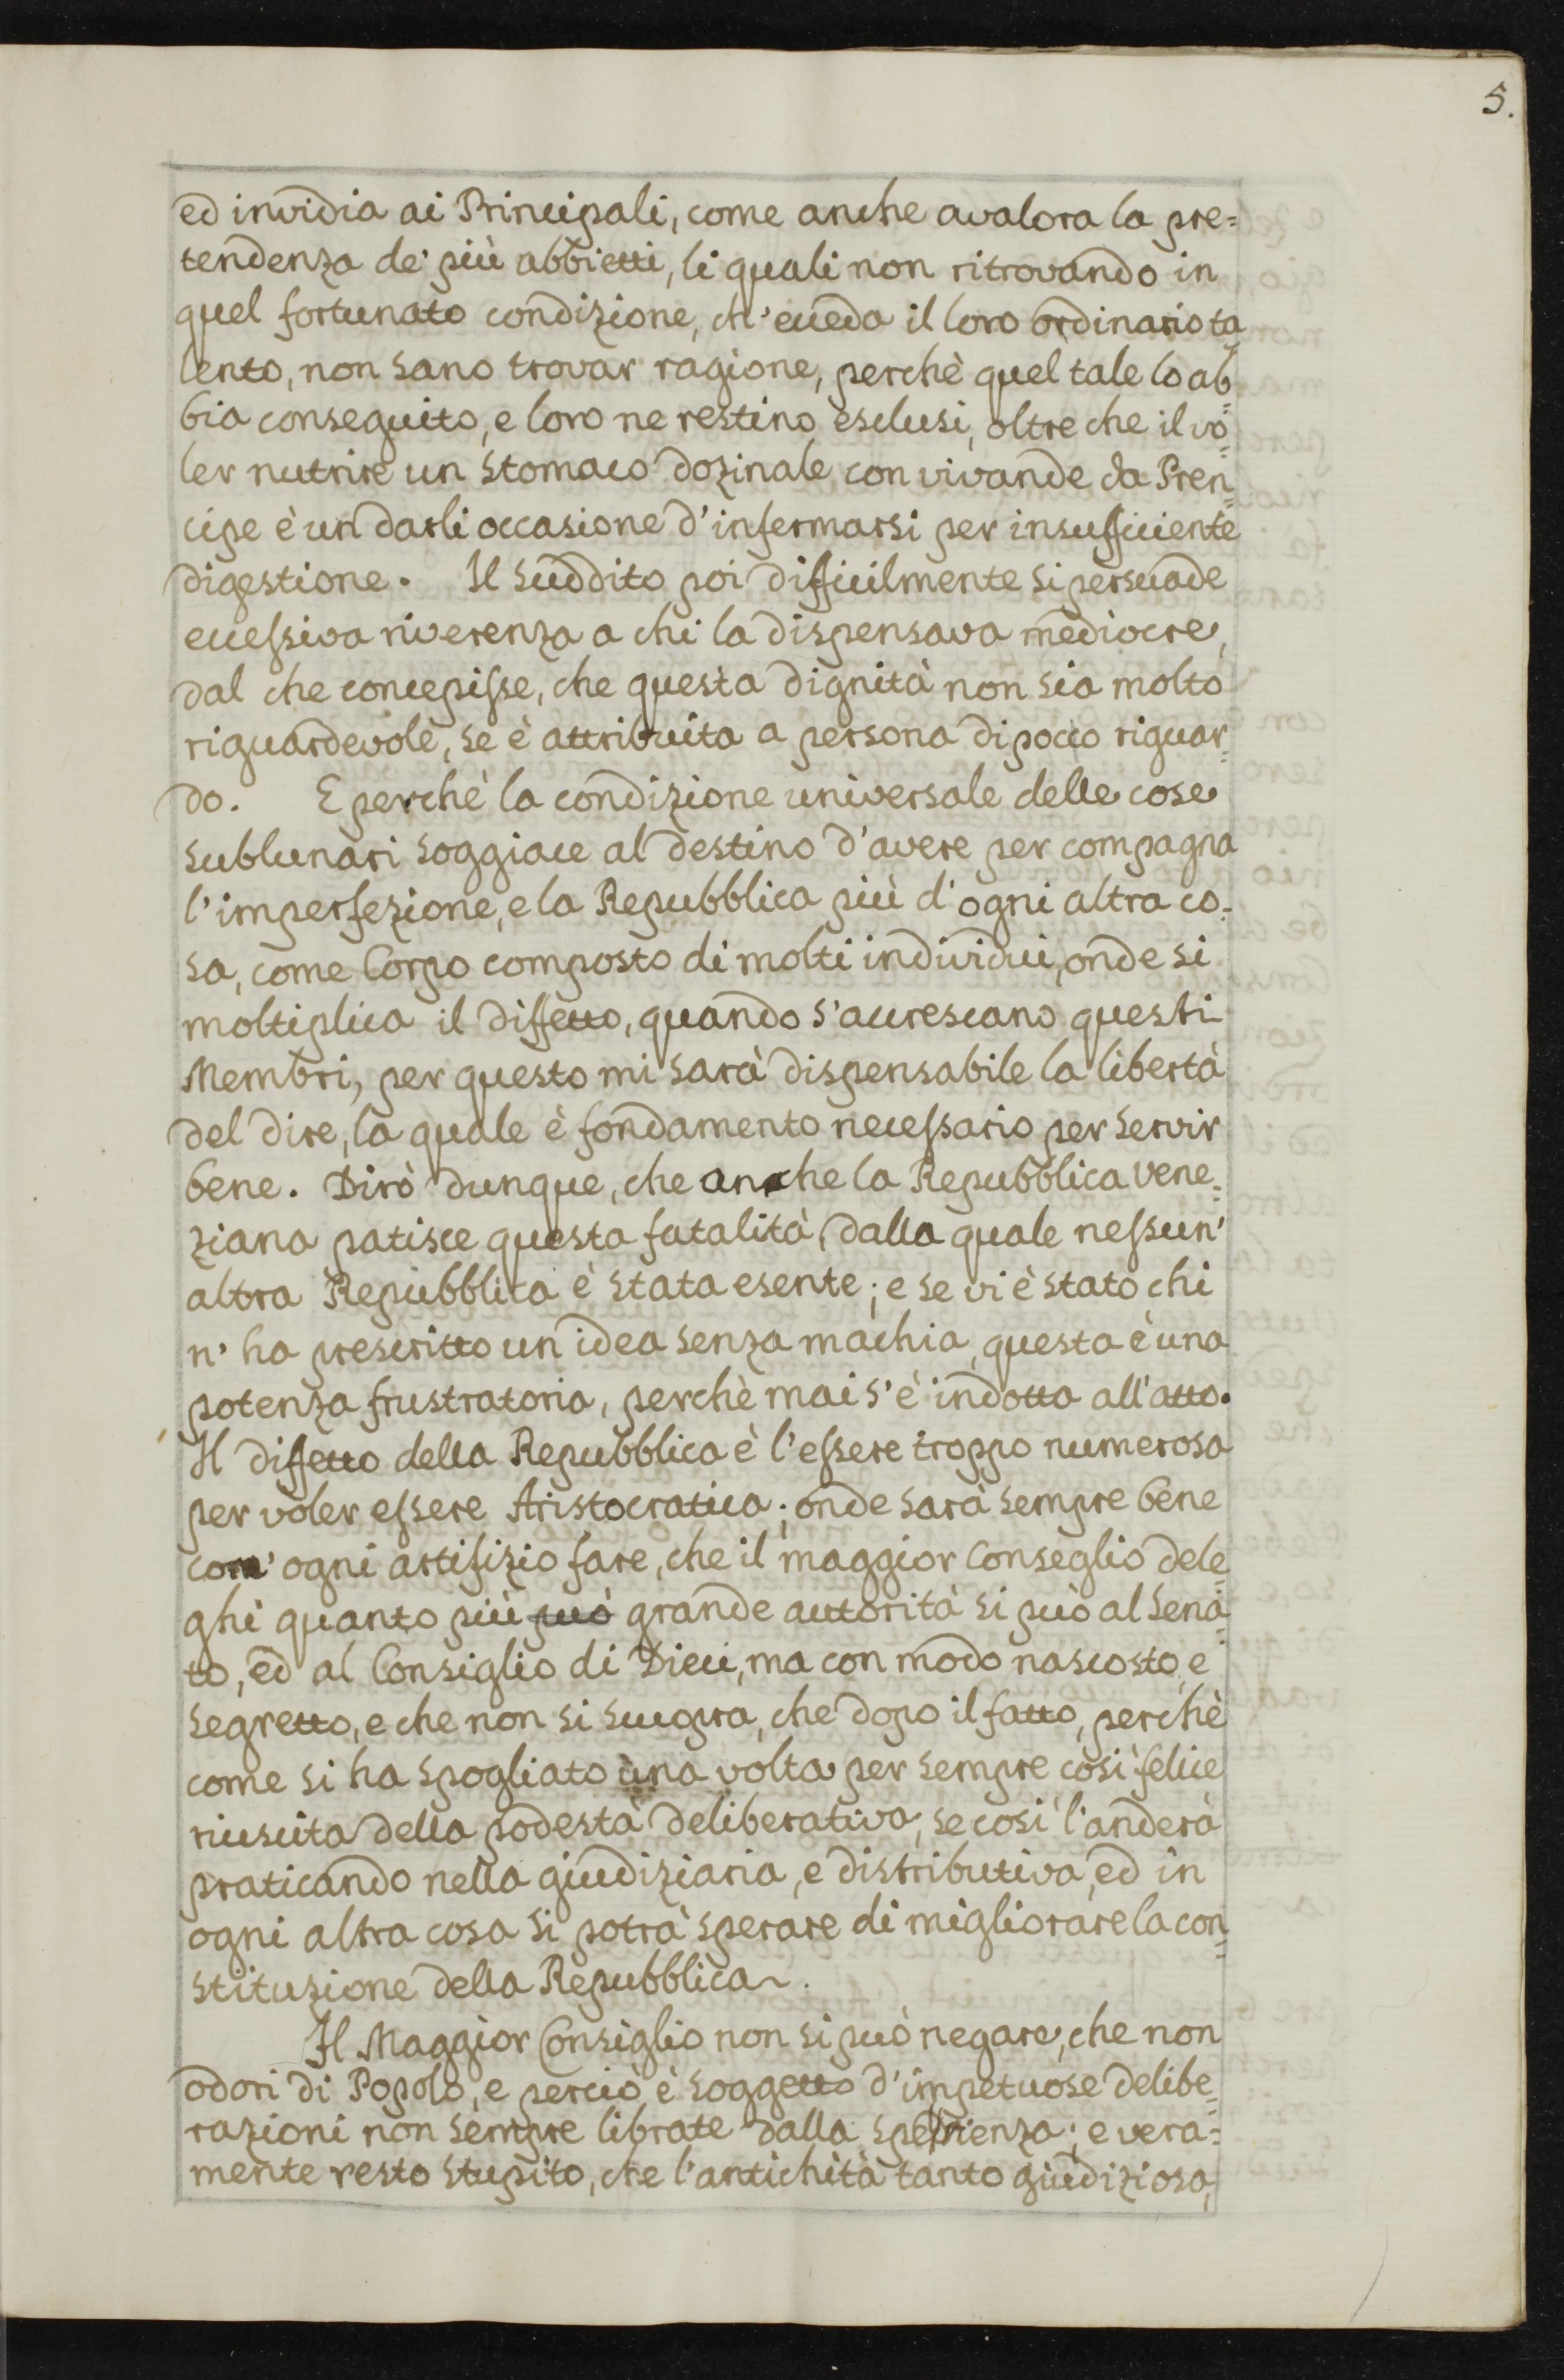 5.
ed invidia ai Principali, come anche avalora la pre=
tendenza de' più abbietti, li quali non ritrovando in
quel fortunato condizione, ch'ecceda il loro ordinario ta
lento, non sano trovar ragione, perchè quel tale lo ab=
bia conseguito, e loro ne restino esclusi, oltre che il vo=
ler nutrire un stomaco dozinale con vivande da Pren=
cipe è un darli occasione d'infermarsi per insufficiente
digestione. Il suddito poi difficilmente si persuade
eccessiva riverenza a chi la dispensava mediocre,
dal che concepisse, che questa dignità non sia molto
riguardevole, se è attribuita a persona di pocco riguar=
do. E perchè la condizione universale delle cose
sublunari soggiace al destino d'avere per compagna
l'imperfezione, e la Repubblica più d'ogni altra co=
sa, come Corpo composto di molti individui, onde si
moltiplica il diffetto, quando s'accrescano questi
Membri, per questo mi sarà dispensabile la libertà
del dire, la quale è fondamento necessario per servir
bene. Dirò dunque, che anche la Repubblica Vene=
ziana patisce questa fatalità, dalla quale nessun'
altra Repubblica è stata esente; e se vi è stato chi
n'ha prescritto un idea senza machia, questa è una
potenza frustratoria, perchè mai s'è indotta all'atto.
Il diffetto della Repubblica è l'essere troppo numerosa
per voler essere Aristocratica; onde sarà sempre bene
com' ogni artifizio fare, che il maggior Conseglio dele=
ghi quanto più può grande autorità si può al Sena=
to, ed al Consiglio di Dieci, ma con modo nascosto, e
segretto, e che non si scuopra, che dopo il fatto, perchè
come si ha spogliato una volta per sempre così felice
riuscita della podestà deliberativa, se così l'anderà
praticando nella giudiziaria, e distributiva, ed in
ogni altra cosa si potrà sperare di migliorare la con=
stituzione della Repubblica.
Il Maggior Consiglio non si può negare, che non
odori di Popolo, e perciò è soggetto d'impetuose delibe=
razioni non sempre librate dalla sperienza; e vera=
mente resto stupito, che l'antichità tanto giudiziosa,